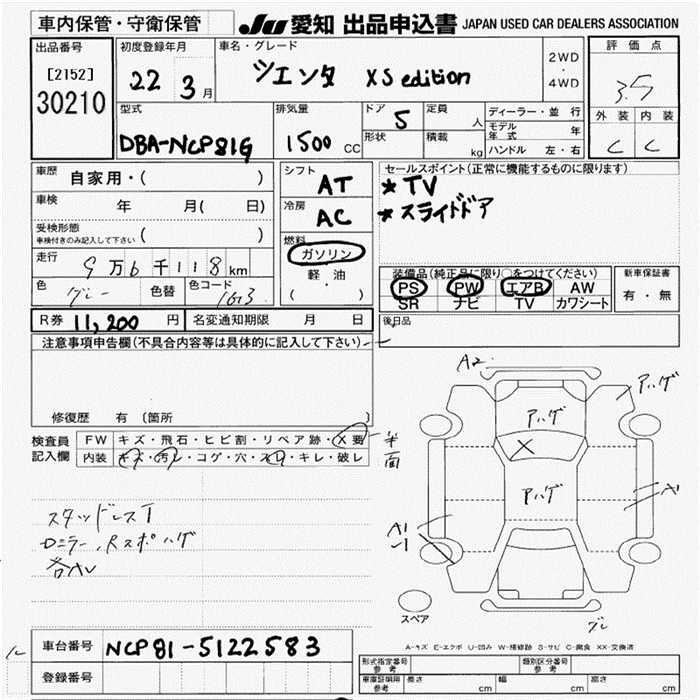 車内保管・守衛保管
JU 愛知 出品申込書 JAPAN USED CAR DEALERS ASSOCIATION
出品番号
[2152]
30210
初度登録年月
22 3月
車名・グレード
シエンタ XS edition
2WD
・
4WD
評価点
3.5
外装 内装
C C
型式
DBA-NCP81G
排気量
1500 CC
ドア
5
形状
定員
人
積載
kg
ディーラー・並行
モデル年式 年
ハンドル 左・右
車歴 自家用・( )
車検 年 月( 日)
受検形態
車検付きのみ記入して下さい ( )
走行 9万6千118km
色 グレー 色替 色コード 1G3
シフト
AT
冷房
AC
燃料
ガソリン
軽・油
( ・ )
セールスポイント(正常に機能するものに限ります)
★TV
★スライドドア
装備品(純正品に限り○をつけてください)
PS PW エアB AW
SR ナビ TV カワシート
新車保証書
有・無
R券 11,200円 名変通知期限 月 日
後日品
注意事項申告欄(不具合内容等は具体的に記入して下さい)
修復歴 有 (箇所 )
検査員記入欄
FW キズ・飛石・ヒビ割・リペア跡・X要
内装 キズ・汚レ・コゲ・穴・スレ・キレ・破レ
半面
スタッドレスT
Dミラー、Rスポハゲ
各AU
A2
アハゲ
アハゲ
X
アハゲ
A1
A1
スペア
グレ
A-キズ E-エクボ U-凹み W-補修跡 S-サビ C-腐食 XX-交換済
車台番号 NCP81-5122583
登録番号
型式指定番号
参考
類別区分番号
参考
車庫証明用
参考
長さ cm 幅 cm 高さ cm